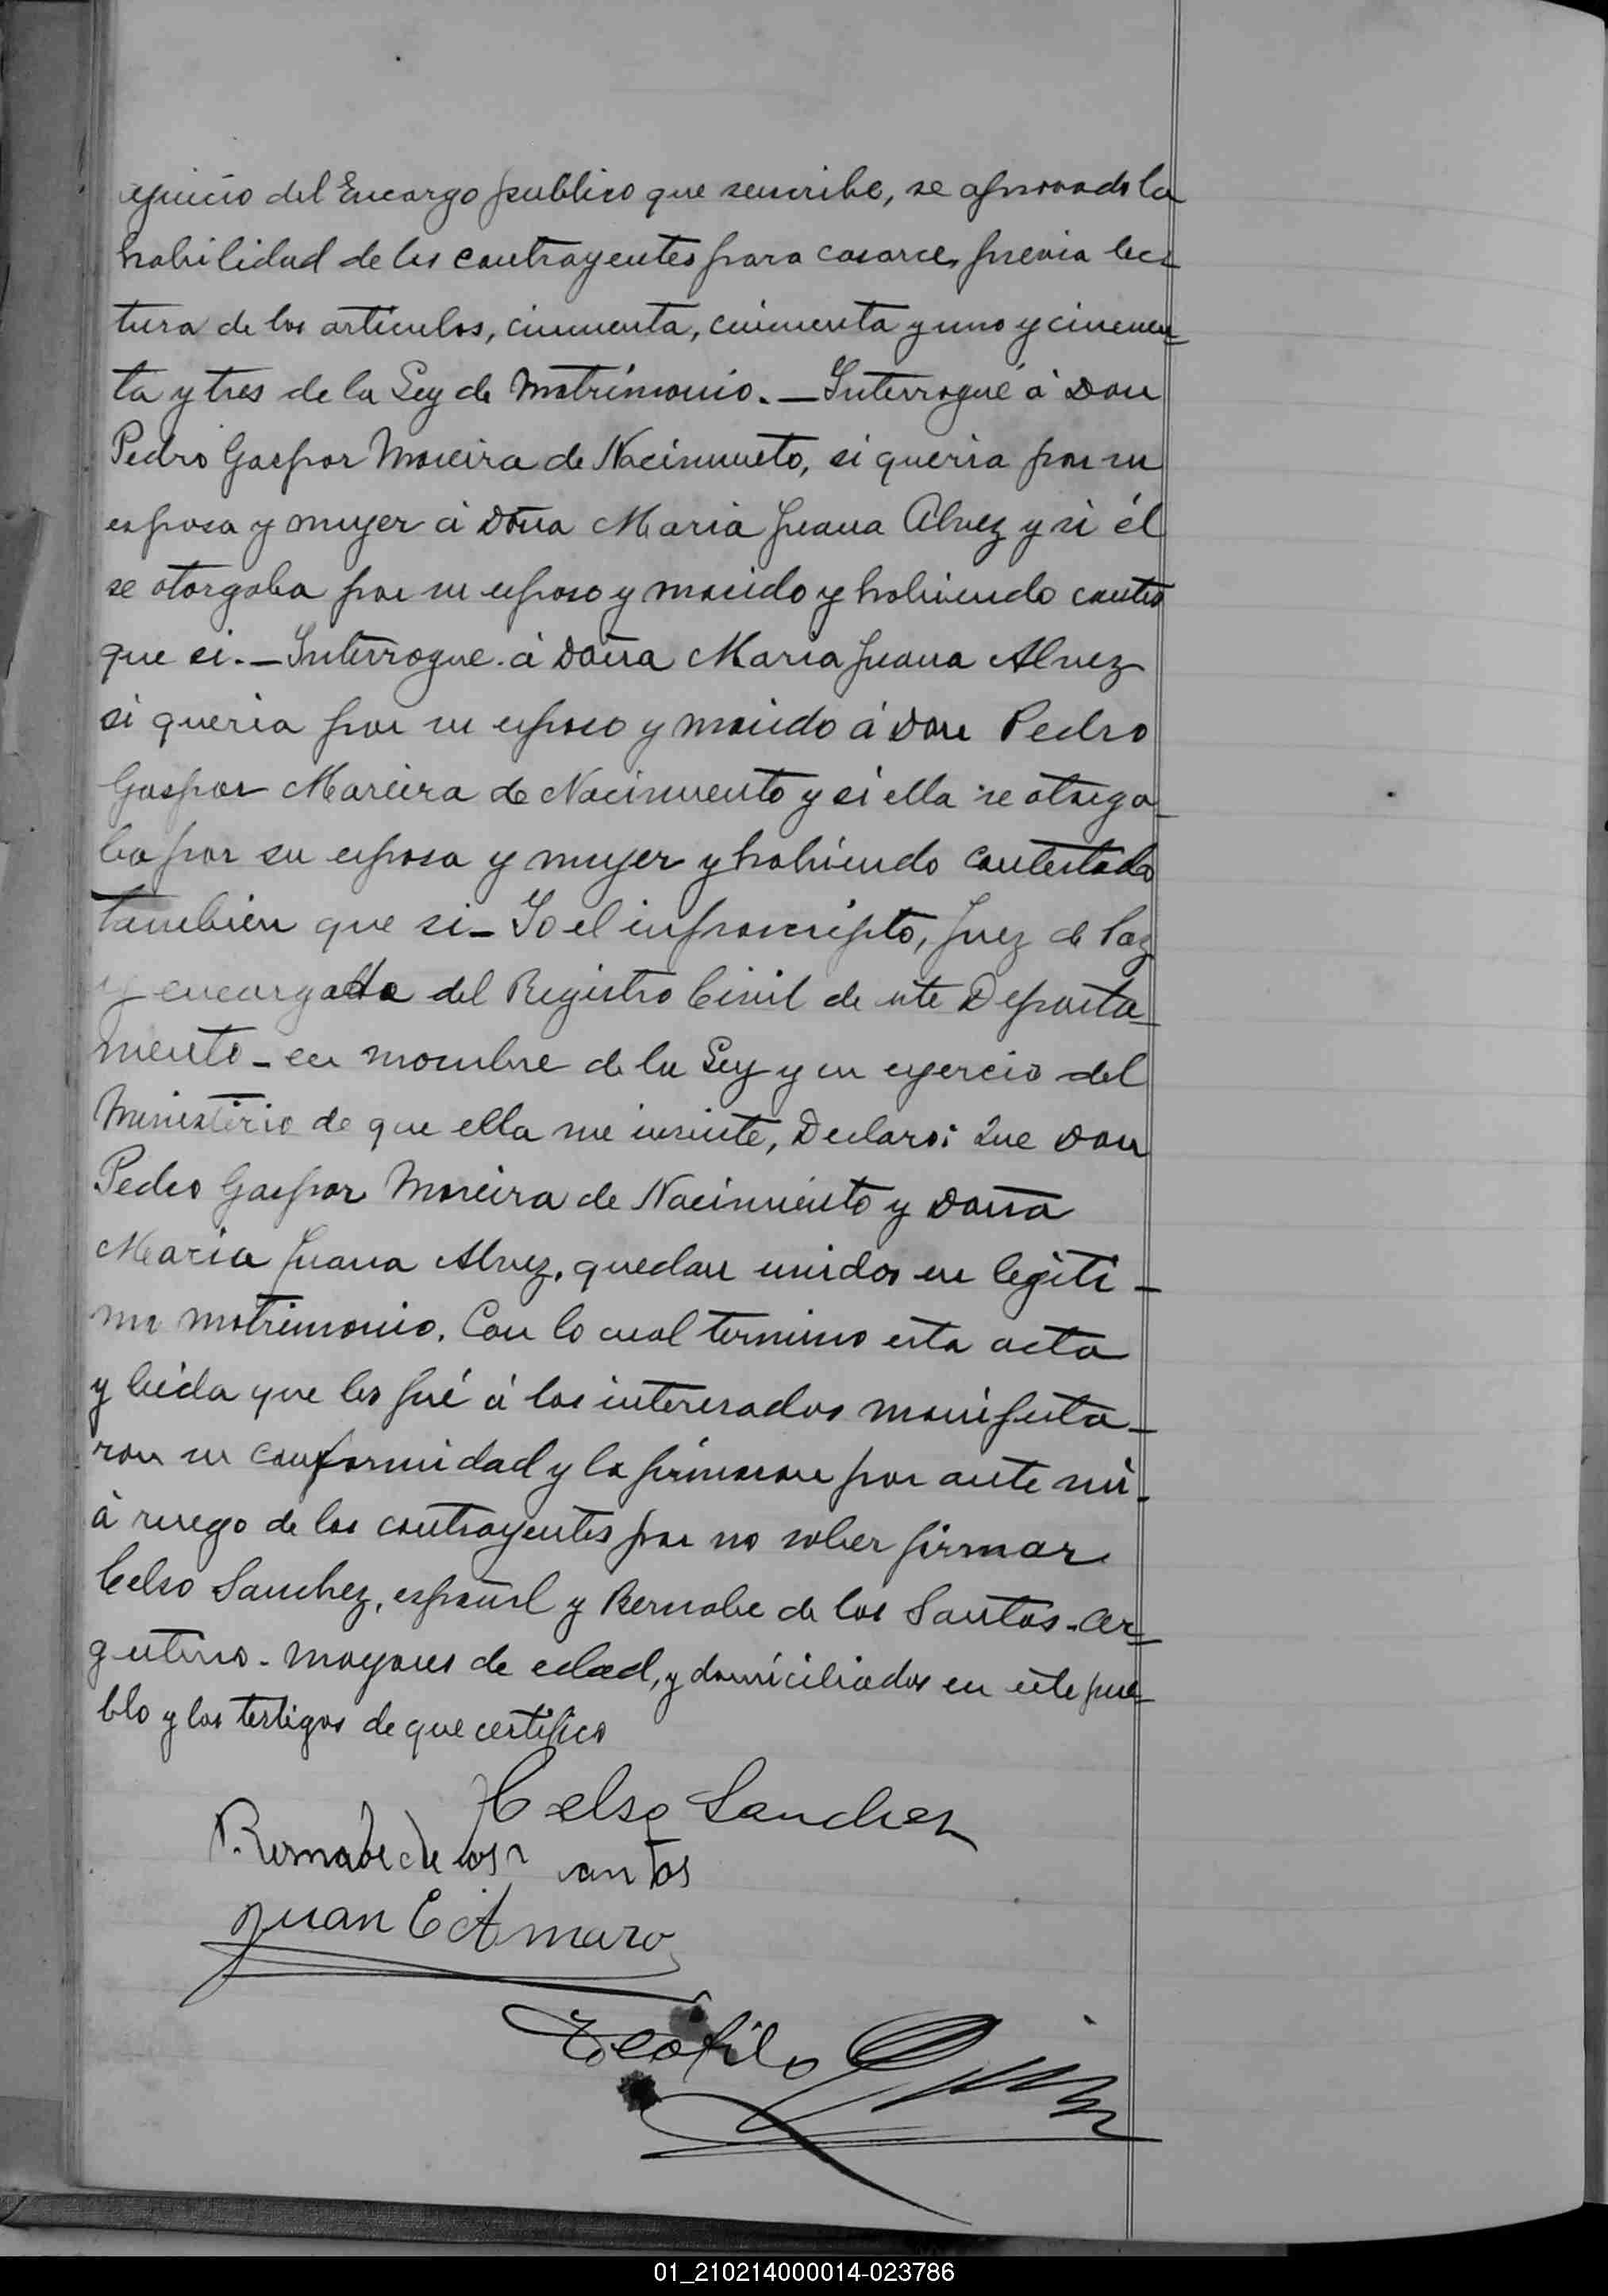 ejercicio del Encargo publico que suscribe, se aprovado la
habilidad de los contrayentes para casarce, previa lec-
tura de los articulos, cincuenta, cincuenta y uno y cincuen-
ta y tres de la Ley de Matrimonio. — Interrogué á Don
Pedro Gaspar Moreira de Nacimiento, si queria por su
esposa y mujer á Doña Maria Juana Alvez y si él
se otorgaba por su esposo y marido y habiendo contes
que si. — Interrogue á Doña Maria Juana Alvez
si queria por su esposo y marido á Don Pedro
Gaspar Moreira de Nacimiento y si ella se otorga-
ba por su esposa y mujer y habiendo contestado
tambien que si — Yo el infrascripto, Juez de Paz
y encargado del Registro Civil de este Departa-
mento — en nombre de la Ley y en ejercio del
Ministerio de que ella me inviste, Declaro: Que Don
Pedro Gaspar Moreira de Nacimiento y Doña
Maria Juana Alvez, quedan unidos en legiti-
mo matrimonio. Con lo cual termino esta acta
y leida que les fué á los interesados manifesta-
ron su conformidad y la firmaron por ante mi.
á ruego de los contrayentes por no saber firmar
Celso Sanchez, español y Bernabe de los Santos - Ar-
gentino - mayores de edad, y domiciliados en este pue-
blo y los testigos de que certifico
Celso Sanchez
Bernabe de los Santos
Juan E Amaro
Teofilo
01_210214000014-023786